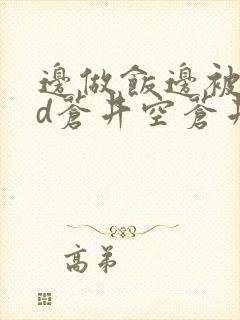 邊做飯邊被
d蒼井空蒼井
高弟